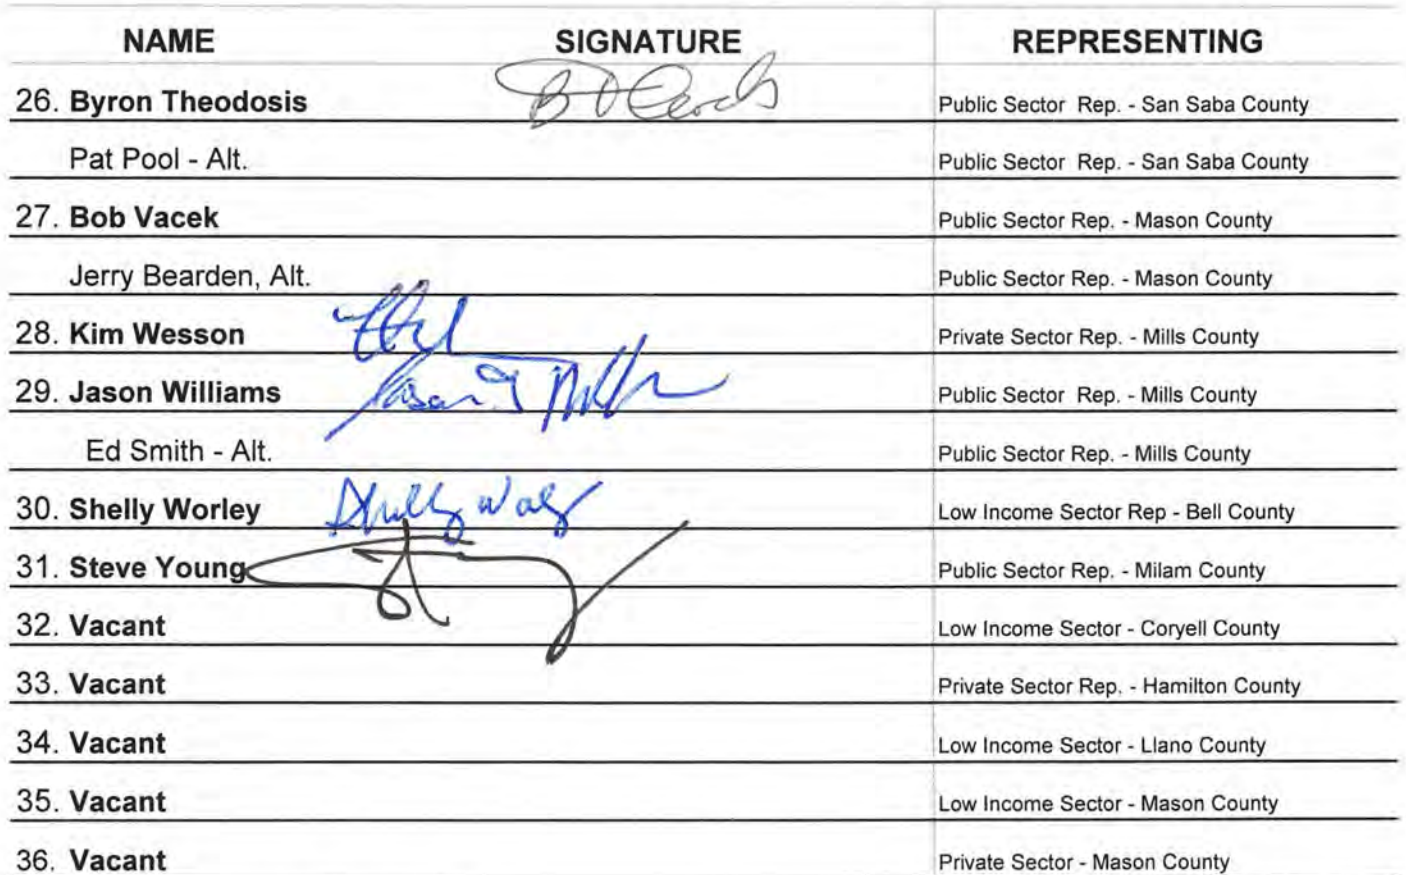 NAME SIGNATURE REPRESENTING
26. Byron Theodosis Public Sector Rep. - San Saba County
Pat Pool - Alt. Public Sector Rep. - San Saba County
27. Bob Vacek Public Sector Rep. - Mason County
Jerry Bearden, Alt. Public Sector Rep. - Mason County
28. Kim Wesson Private Sector Rep. - Mills County
29. Jason Williams Public Sector Rep. - Mills County
Ed Smith - Alt. Public Sector Rep. - Mills County
30. Shelly Worley Low Income Sector Rep - Bell County
31. Steve Young Public Sector Rep. - Milam County
32. Vacant Low Income Sector - Coryell County
33. Vacant Private Sector Rep. - Hamilton County
34. Vacant Low Income Sector - Llano County
35. Vacant Low Income Sector - Mason County
36. Vacant Private Sector - Mason County